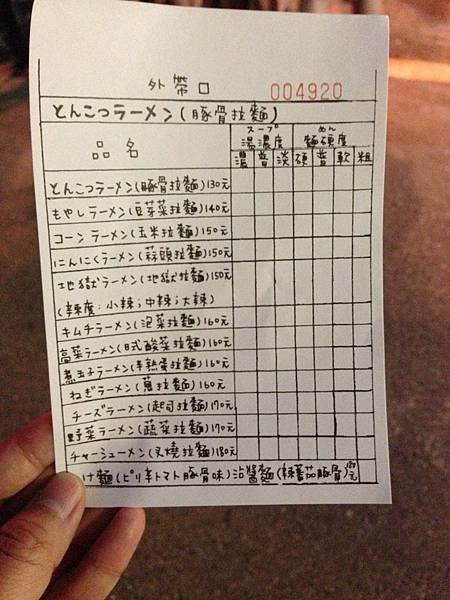 外帶口 004920
とんこつラーメン(豚骨拉麵)
品名
スープ 湯濃度
めん 麵頭度
濃 普 淡 硬 普 軟 粗
とんこつラーメン(豚骨拉麵)130元
もやしラーメン(豆芽菜拉麵)140元
コーンラーメン(玉米拉麵)150元
にんにくラーメン(蒜頭拉麵)150元
地獄ラーメン(地獄拉麵)150元
(辣度:小辣;中辣;大辣)
キムチラーメン(泡菜拉麵)160元
高菜ラーメン(日式酸菜拉麵)160元
煮玉子ラーメン(半熟蛋拉麵)160元
ねぎラーメン(蔥拉麵)160元
チーズラーメン(起司拉麵)170元
野菜ラーメン(蔬菜拉麵)170元
チャーシューメン(叉燒拉麵)180元
け麵(ピリ辛トマト豚骨味)沾醬麵(辣蕃茄豚骨)元